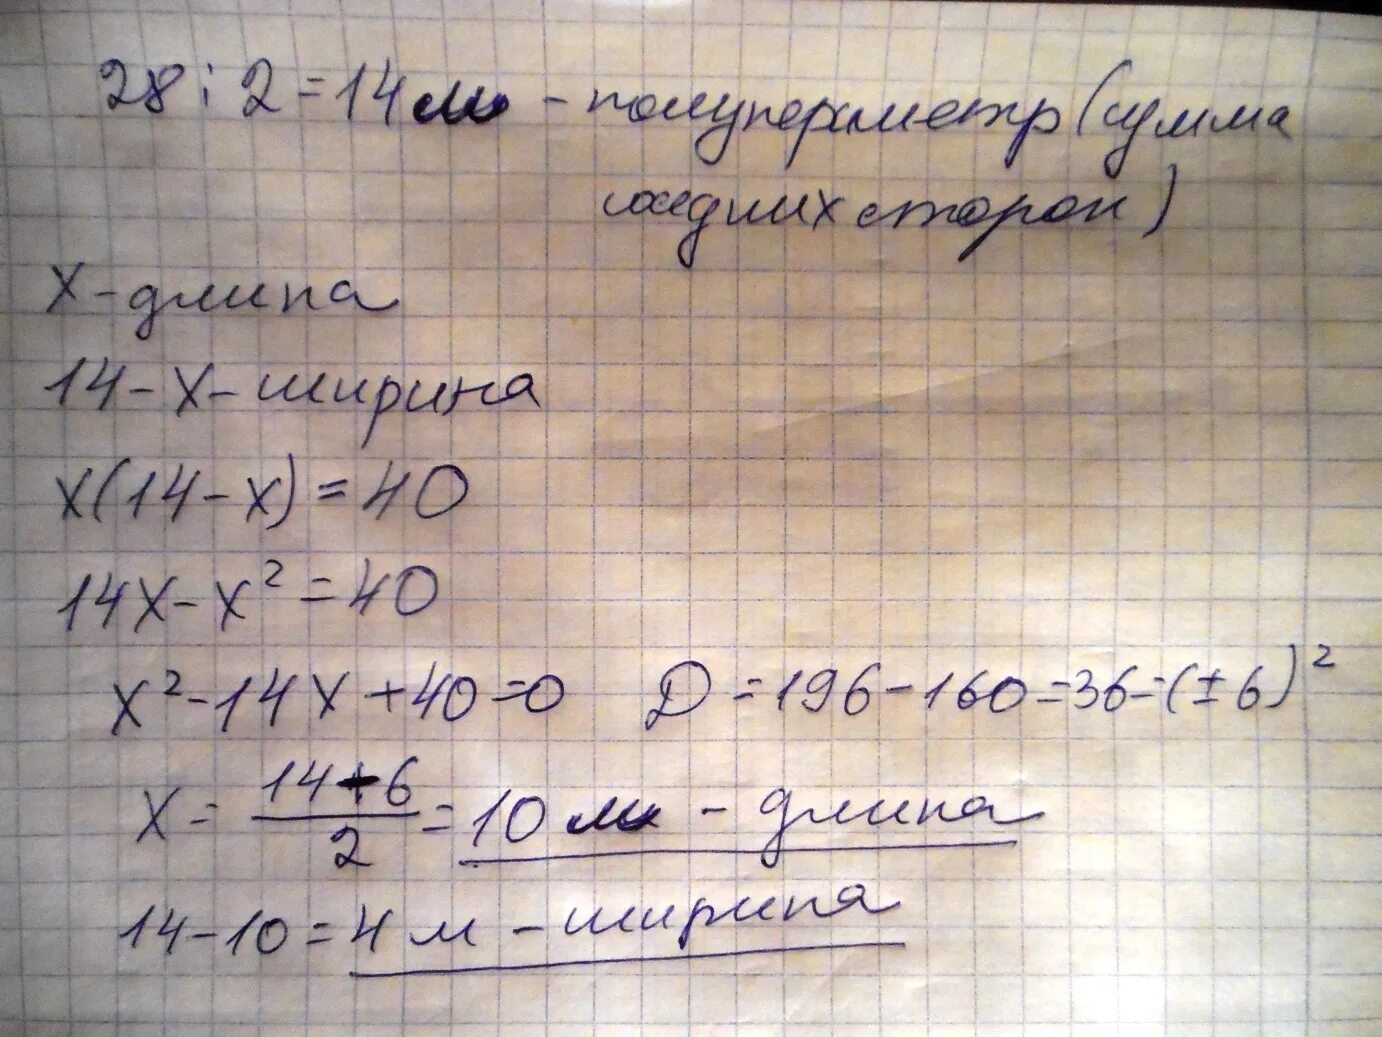 28 : 2 = 14 м - полупериметр (сумма
соседних сторон)
X - длина
14 - X - ширина
x(14 - x) = 40
14X - X² = 40
X² - 14X + 40 = 0 D = 196 - 160 = 36 = (± 6)²
X = (14 + 6)/2 = 10 м - длина
14 - 10 = 4 м - ширина